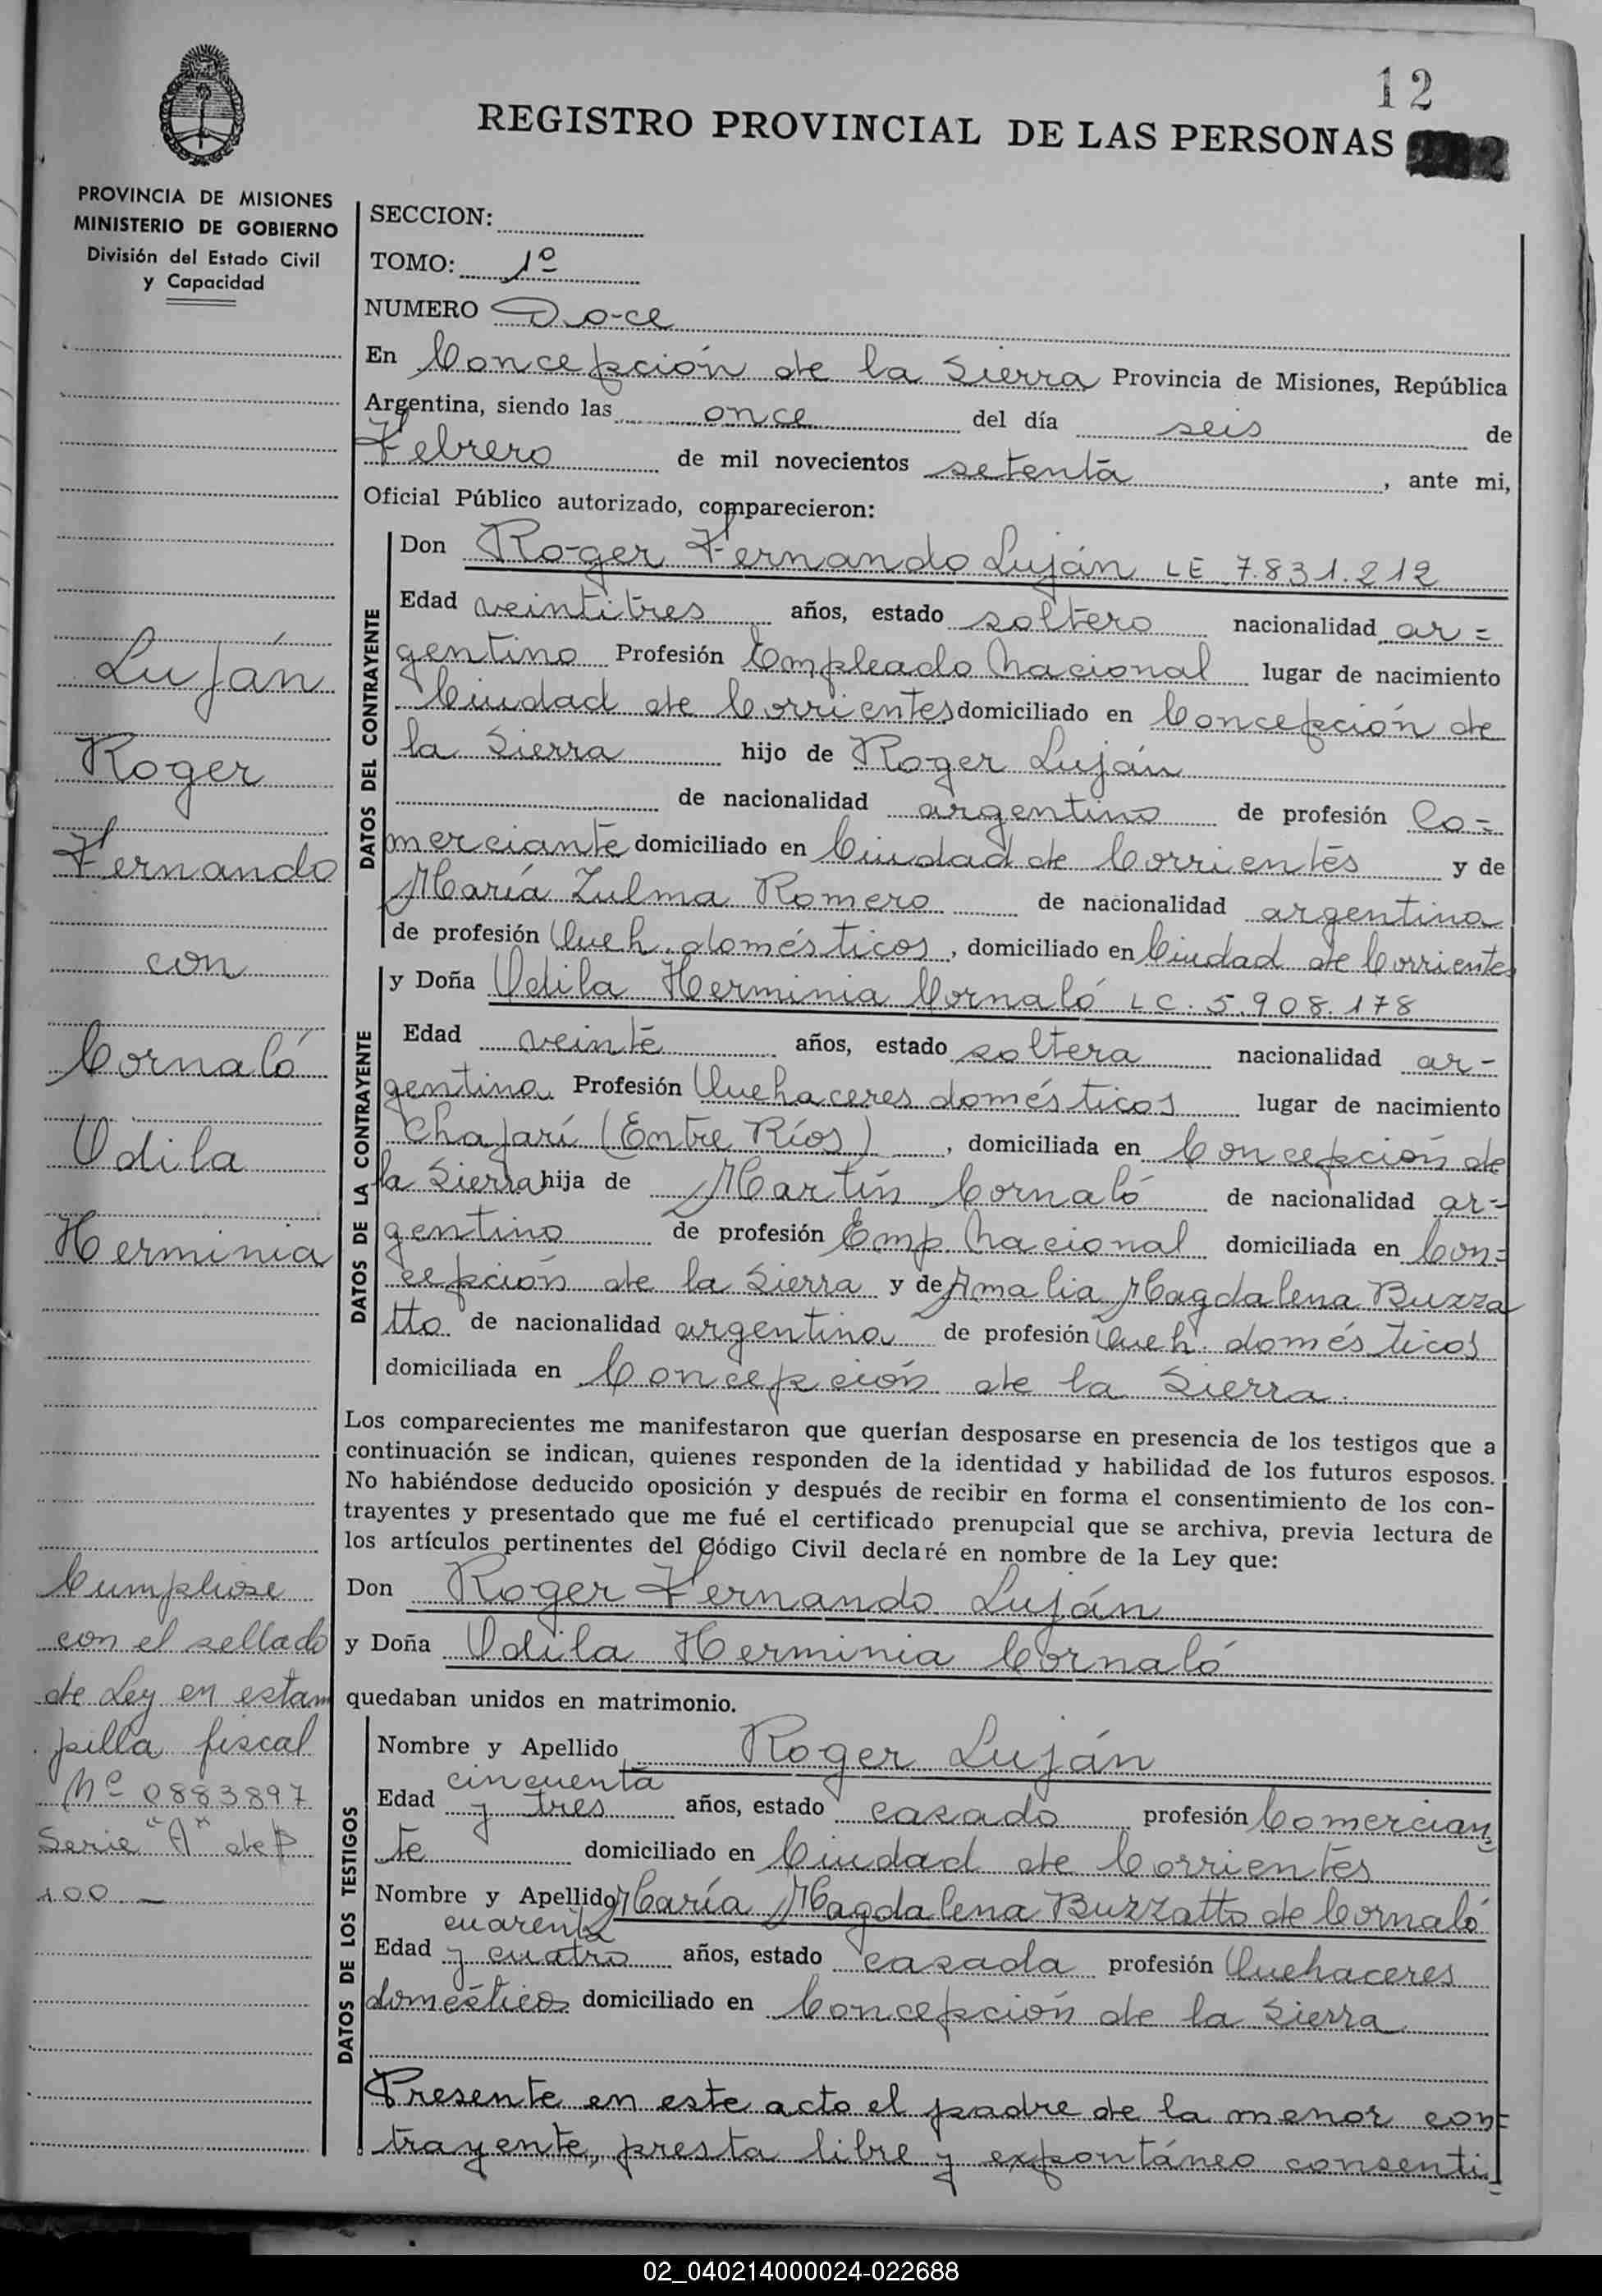 12
REGISTRO PROVINCIAL DE LAS PERSONAS
PROVINCIA DE MISIONES
MINISTERIO DE GOBIERNO
División del Estado Civil
y Capacidad
Luján
Roger
Fernando
con
Cornaló
Odila
Herminia
Cumpliose
con el sellado
de Ley en estam
pilla fiscal
Nº 0883897
Serie "A" de P
100 -
SECCION:
TOMO: 1º
NUMERO Doce
En Concepción de la Sierra Provincia de Misiones, República
Argentina, siendo las once del día seis de
Febrero de mil novecientos setenta, ante mi,
Oficial Público autorizado, comparecieron:
DATOS DEL CONTRAYENTE
Don Roger Fernando Luján LE 7.831.212
Edad veintitres años, estado soltero nacionalidad ar=
gentino Profesión Empleado Nacional lugar de nacimiento
Ciudad de Corrientes domiciliado en Concepción de
la Sierra hijo de Roger Luján
de nacionalidad argentino de profesión Co=
merciante domiciliado en Ciudad de Corrientes y de
María Zulma Romero de nacionalidad argentina
de profesión Queh. domésticos, domiciliado en Ciudad de Corrientes
DATOS DE LA CONTRAYENTE
y Doña Odila Herminia Cornaló LC. 5.908.178
Edad veinte años, estado soltera nacionalidad ar-
gentina Profesión Quehaceres domésticos lugar de nacimiento
Chajarí (Entre Ríos), domiciliada en Concepción de
la Sierra hija de Martín Cornaló de nacionalidad ar=
gentino de profesión Emp. Nacional domiciliada en Con=
cepción de la Sierra y de Amalia Magdalena Buzza
tto de nacionalidad argentina de profesión Queh. domésticos
domiciliada en Concepción de la Sierra.
Los comparecientes me manifestaron que querían desposarse en presencia de los testigos que a
continuación se indican, quienes responden de la identidad y habilidad de los futuros esposos.
No habiéndose deducido oposición y después de recibir en forma el consentimiento de los con-
trayentes y presentado que me fué el certificado prenupcial que se archiva, previa lectura de
los artículos pertinentes del Código Civil declaré en nombre de la Ley que:
Don Roger Fernando Luján
y Doña Odila Herminia Cornaló
quedaban unidos en matrimonio.
DATOS DE LOS TESTIGOS
Nombre y Apellido Roger Luján
cincuenta
Edad y tres años, estado casado profesión Comercian=
te domiciliado en Ciudad de Corrientes
Nombre y Apellido María Magdalena Buzzatto de Cornaló
cuarenta
Edad y cuatro años, estado casada profesión Quehaceres
domésticos domiciliado en Concepción de la Sierra
Presente en este acto el padre de la menor con=
trayente, presta libre y expontáneo consenti=
02_040214000024-022688